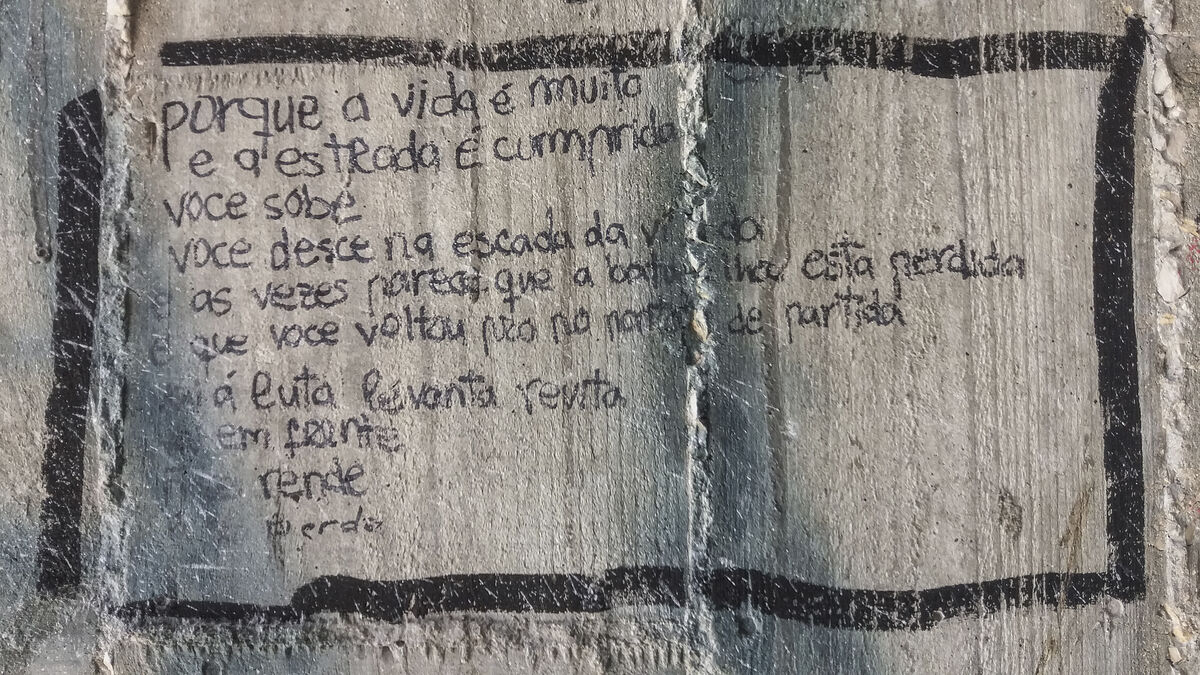 porque a vida é muito
e a estrada é cumprida
voce sobe
voce desce na escada da vida
as vezes parece que a batalha esta perdida
e que voce voltou pro no ponto de partida
á luta levanta revita
em frante
rende
perde